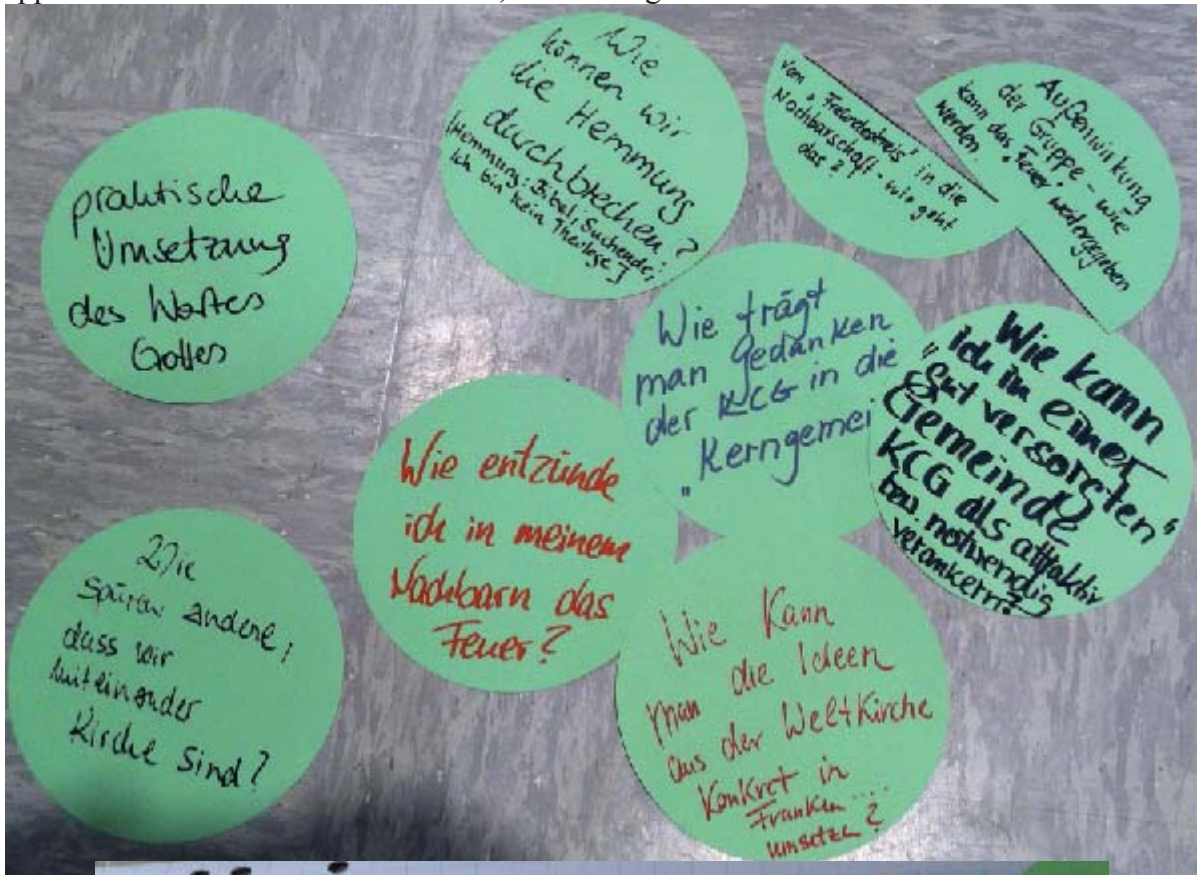 praktische
Umsetzung
des Wortes
Gottes
Wie
können wir
die Hemmung
durchbrechen?
(Hemmung: Bibel; Suchende;
Ich bin kein Theologe)
vom „Freundeskreis" in die
Nachbarschaft - wie geht
das?
Außenwirkung
der Gruppe - wie
kann das „Feuer" weitergegeben
werden.
Wie trägt
man Gedanken
der KCG in die
„Kerngemei
Wie kann
ich in einer
"gut versorgten"
Gemeinde
KCG als attraktiv
bzw. notwendig
verankern?
Wie entzünde
ich in meinem
Nachbarn das
Feuer?
Wie
spüren andere,
dass wir
miteinander
Kirche sind?
Wie kann
man die Ideen
aus der Weltkirche
konkret in
Franken ....
umsetze?